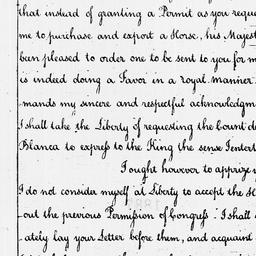 that instead of granting a Permit as you reque
me to purchase and export a Horse, his Majest
been pleased to order one to be sent to you for m
is indeed doing a Favor in a royal manner
mands my sincere and respectful acknowledgm
I shall take the Liberty of requesting the Count de
Blanca to express to the King the sense I entert
I ought however to apprize y
I do not consider myself at Liberty to accept the H
out the previous Permission of Congress. I shall
ately lay your Letter before them, and acquaint